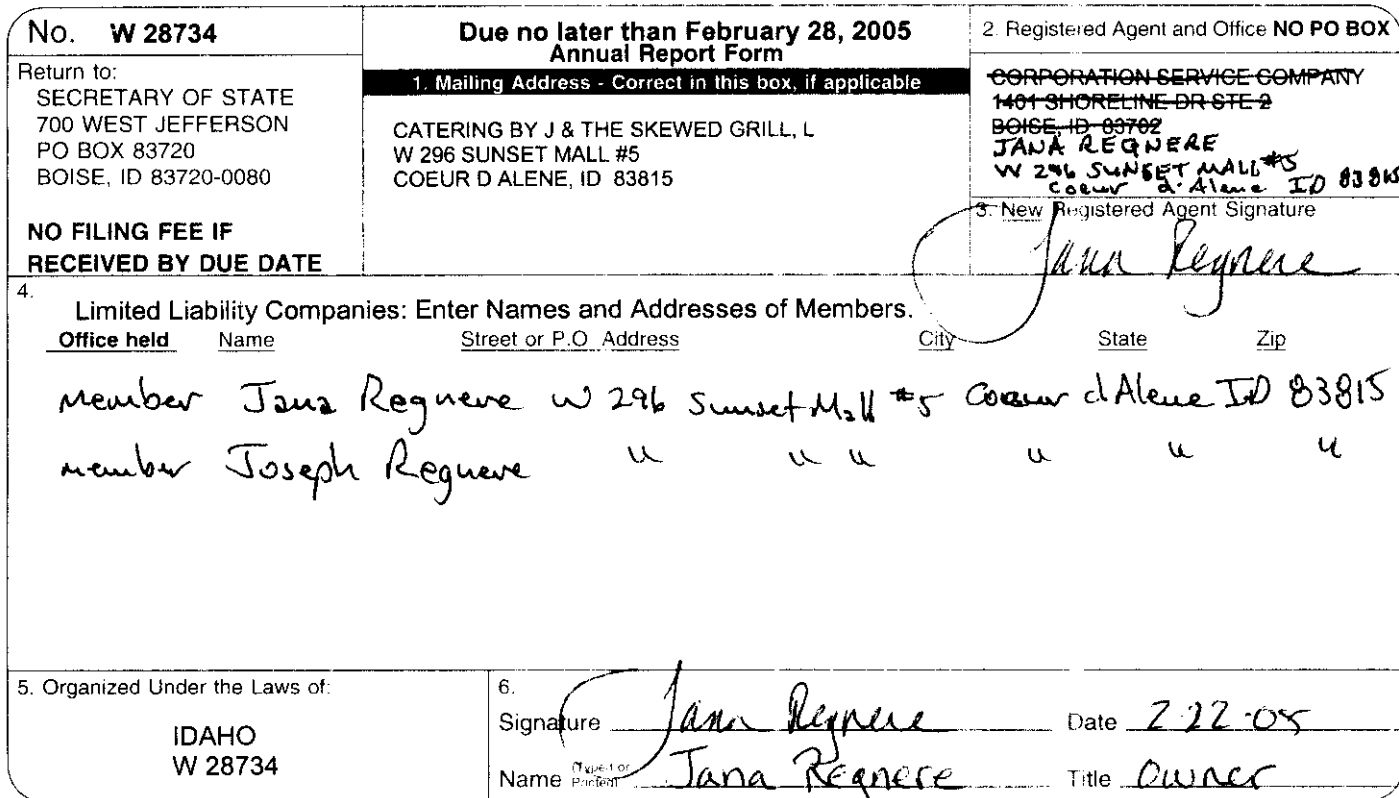 No. W 28734
Return to:
SECRETARY OF STATE
700 WEST JEFFERSON
PO BOX 83720
BOISE, ID 83720-0080
NO FILING FEE IF
RECEIVED BY DUE DATE
Due no later than February 28, 2005
Annual Report Form
1. Mailing Address - Correct in this box, if applicable
CATERING BY J & THE SKEWED GRILL, L
W 296 SUNSET MALL #5
COEUR D ALENE, ID 83815
2. Registered Agent and Office NO PO BOX
CORPORATION SERVICE COMPANY
1401 SHORELINE DR STE 2
BOISE, ID 83702
JANA REGNERE
W 296 SUNSET MALL #5
Coeur d'Alene ID 83815
3. New Registered Agent Signature
Jana Regnere
4.
Limited Liability Companies: Enter Names and Addresses of Members.
Office held Name Street or P.O Address City State Zip
member Jana Regnere W 296 Sunset Mall #5 Coeur d Alene ID 83815
member Joseph Regnere " " " " " "
5. Organized Under the Laws of:
IDAHO
W 28734
6.
Signature Jana Regnere Date 2-22-05
Name (Typed or Printed) Jana Regnere Title Owner